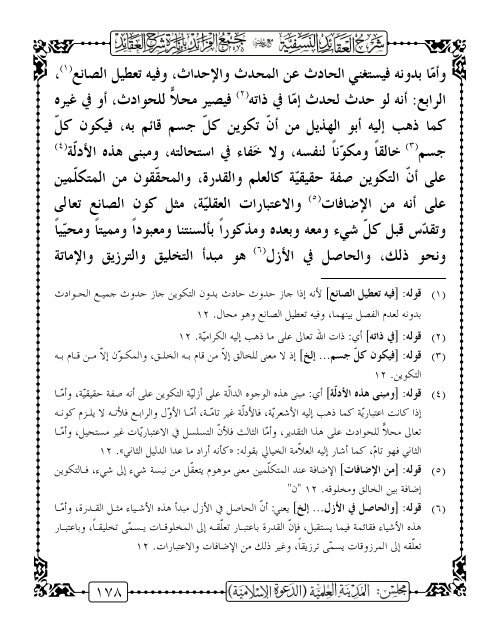 شرح العقائد النسفية مع جمع الفرائد بإنارة شرح العقائد
وأمّا بدونه فيستغني الحادث عن المحدث والإحداث، وفيه تعطيل الصانع(١)،
الرابع: أنه لو حدث لحدث إمّا في ذاته(٢) فيصير محلاًّ للحوادث، أو في غيره
كما ذهب إليه أبو الهذيل من أنّ تكوين كلّ جسم قائم به، فيكون كلّ
جسم(٣) خالقاً ومكوّناً لنفسه، ولا خَفاء في استحالته، ومبنى هذه الأدلّة(٤)
على أنّ التكوين صفة حقيقيّة كالعلم والقدرة، والمحقّقون من المتكلّمين
على أنه من الإضافات(٥) والاعتبارات العقليّة، مثل كون الصانع تعالى
وتقدّس قبل كلّ شيء ومعه وبعده ومذكوراً بألسنتنا ومعبوداً ومميتاً ومحيّياً
ونحو ذلك، والحاصل في الأزل(٦) هو مبدأ التخليق والترزيق والإماتة
(١) قوله: [فيه تعطيل الصانع] لأنه إذا جاز حدوث حادث بدون التكوين جاز حدوث جميع الحوادث
بدونه لعدم الفصل بينهما، وفيه تعطيل الصانع وهو محال. ١٢
(٢) قوله: [في ذاته] أي: ذات الله تعالى على ما ذهب إليه الكراميّة. ١٢
(٣) قوله: [فيكون كلّ جسم... إلخ] إذ لا معنى للخالق إلاّ من قام به الخلق، والمكوّن إلاّ من قام به
التكوين. ١٢
(٤) قوله: [ومبنى هذه الأدلّة] أي: مبنى هذه الوجوه الدالّة على أزليّة التكوين على أنه صفة حقيقيّة، وأمّا
إذا كانت اعتباريّة كما ذهب إليه الأشعريّة، فالأدلّة غير تامّة، أمّا الأوّل والرابع فلأنّه لا يلزم كونه
تعالى محلاًّ للحوادث على هذا التقدير، وأمّا الثالث فلأنّ التسلسل في الاعتباريّات غير مستحيل، وأمّا
الثاني فهو تامّ، كما أشار إليه العلاّمة الخيالي بقوله: «كأنّه أراد ما عدا الدليل الثاني». ١٢
(٥) قوله: [من الإضافات] الإضافة عند المتكلّمين معنى موهوم يتعقّل من نيسة شيء إلى شيء، فالتكوين
إضافة بين الخالق ومخلوقه. ١٢ "ن"
(٦) قوله: [والحاصل في الأزل... إلخ] يعني: أنّ الحاصل في الأزل مبدأ هذه الأشياء مثل القدرة، وأمّا
هذه الأشياء فقائمة فيما يستقبل، فإنّ القدرة باعتبار تعلّقه إلى المخلوقات يسمّى تخليقاً، وباعتبار
تعلّقه إلى المرزوقات يسمّى ترزيقاً، وغير ذلك من الإضافات والاعتبارات. ١٢
مجلس: المدينة العلمية (الدعوة الإسلامية)
١٧٨